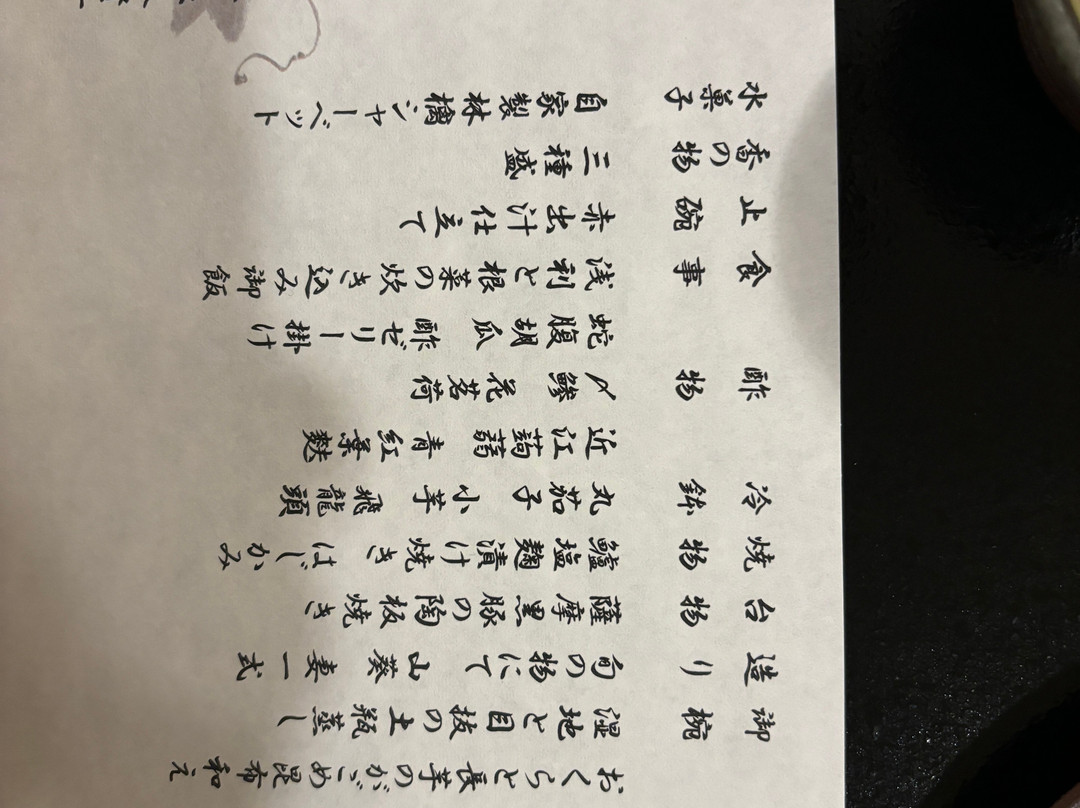 おくらと長芋のがごめ昆布和え
御椀　湿地と目抜の土瓶蒸し
造り　旬の物にて　山葵　妻一式
台物　薩摩黒豚の陶板焼き
焼物　鱸塩麹漬け焼き　はじかみ
冷鉢　丸茄子　小芋　飛龍頭
近江蒟蒻　青紅葉麩
酢物　〆鯵　花茗荷
蛇腹胡瓜　酢ゼリー掛け
食事　浅利と根菜の炊き込み御飯
止碗　赤出汁仕立て
香の物　三種盛
水菓子　自家製林檎シャーベット